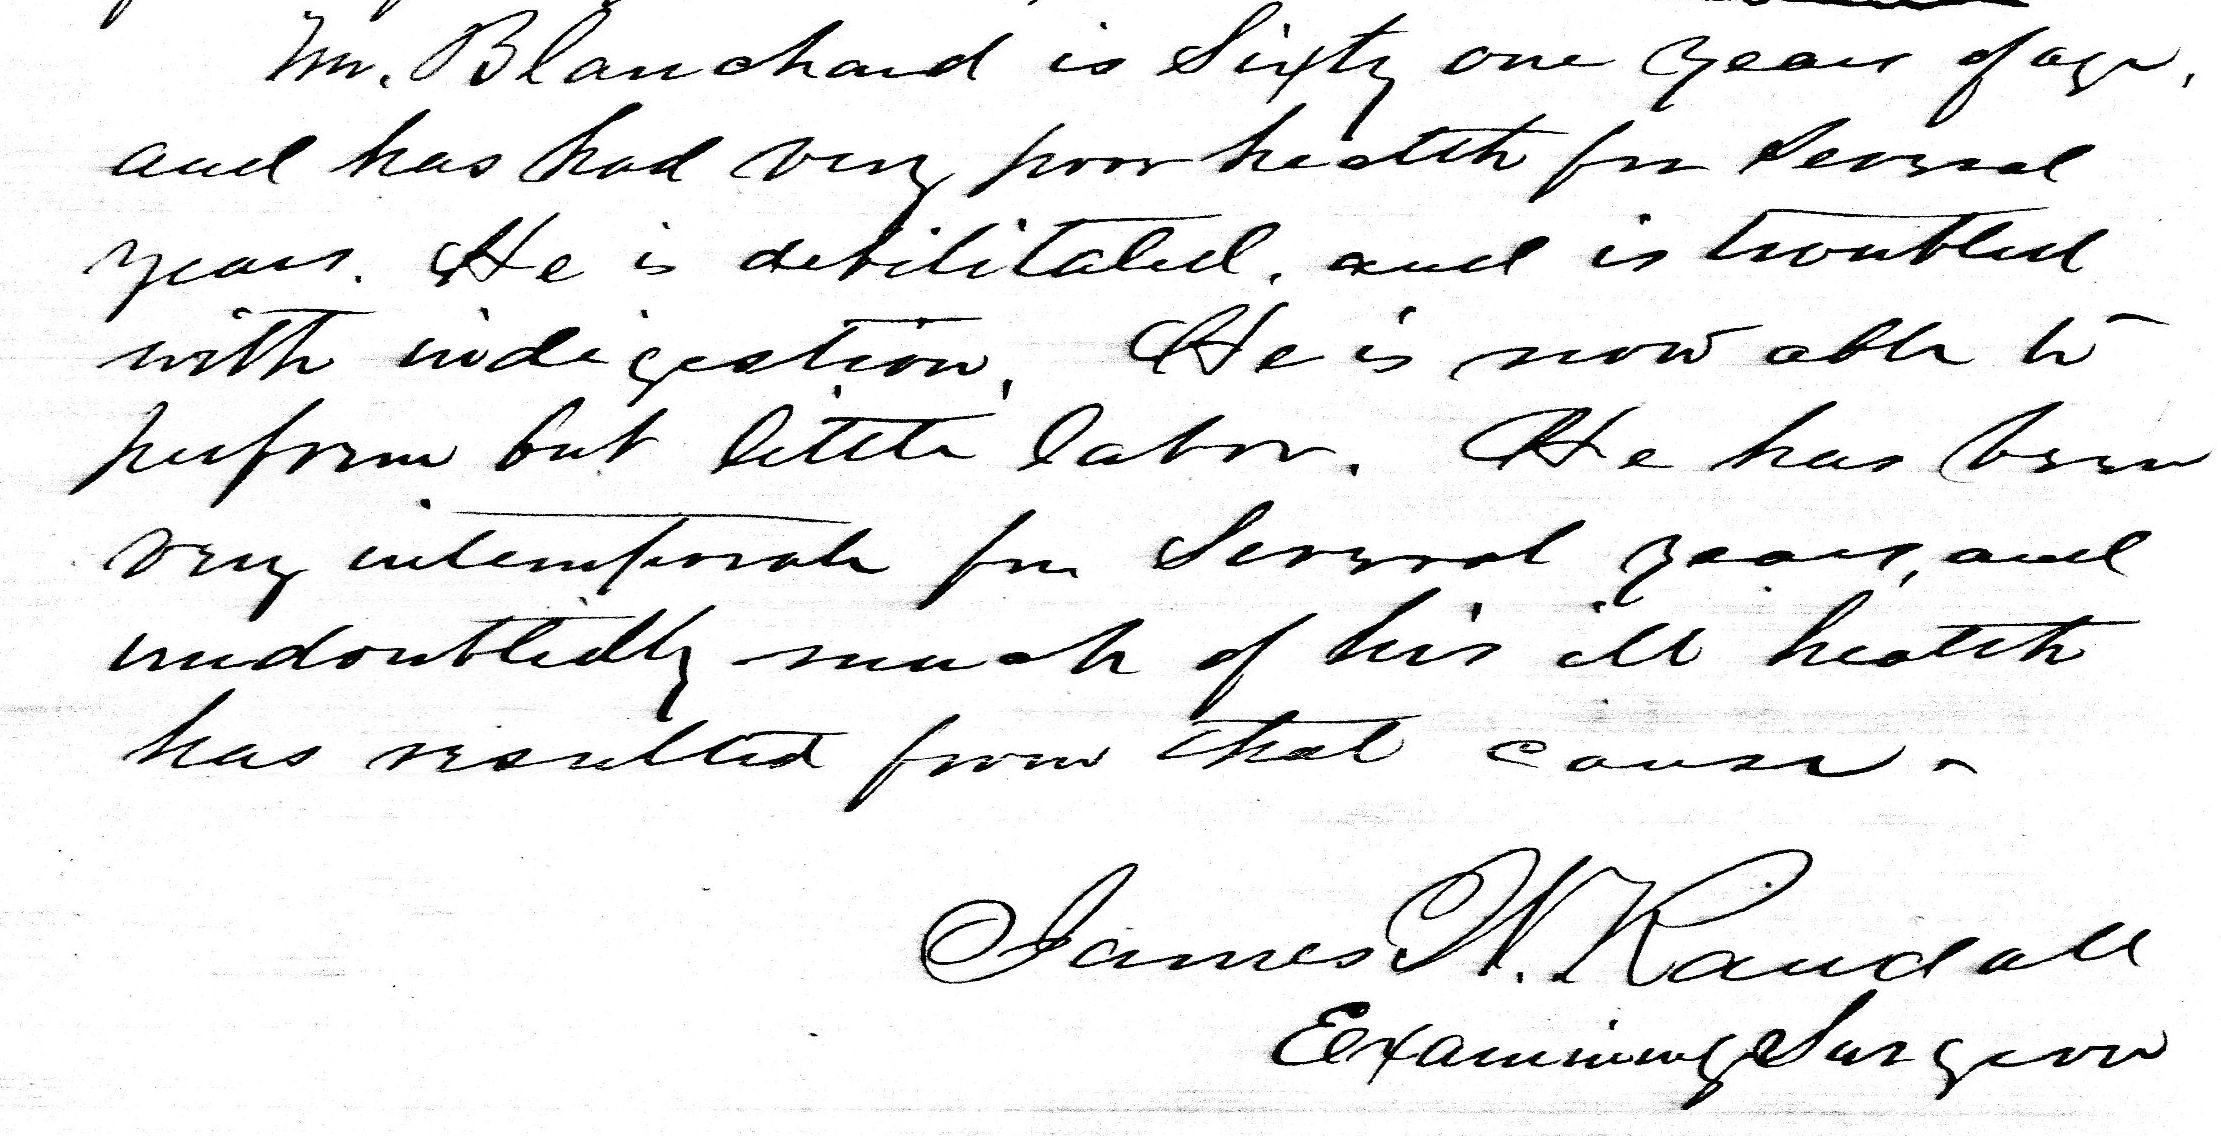 Mr. Blanchard is Sixty one years of age,
and has had very poor health for Several
years. He is debilitated, and is troubled
with indigestion. He is now able to
perform but little labor. He has been
very intemperate for Several years, and
undoubtedly much of his ill health
has resulted from that cause.
James W. Randall
Examining Surgeon